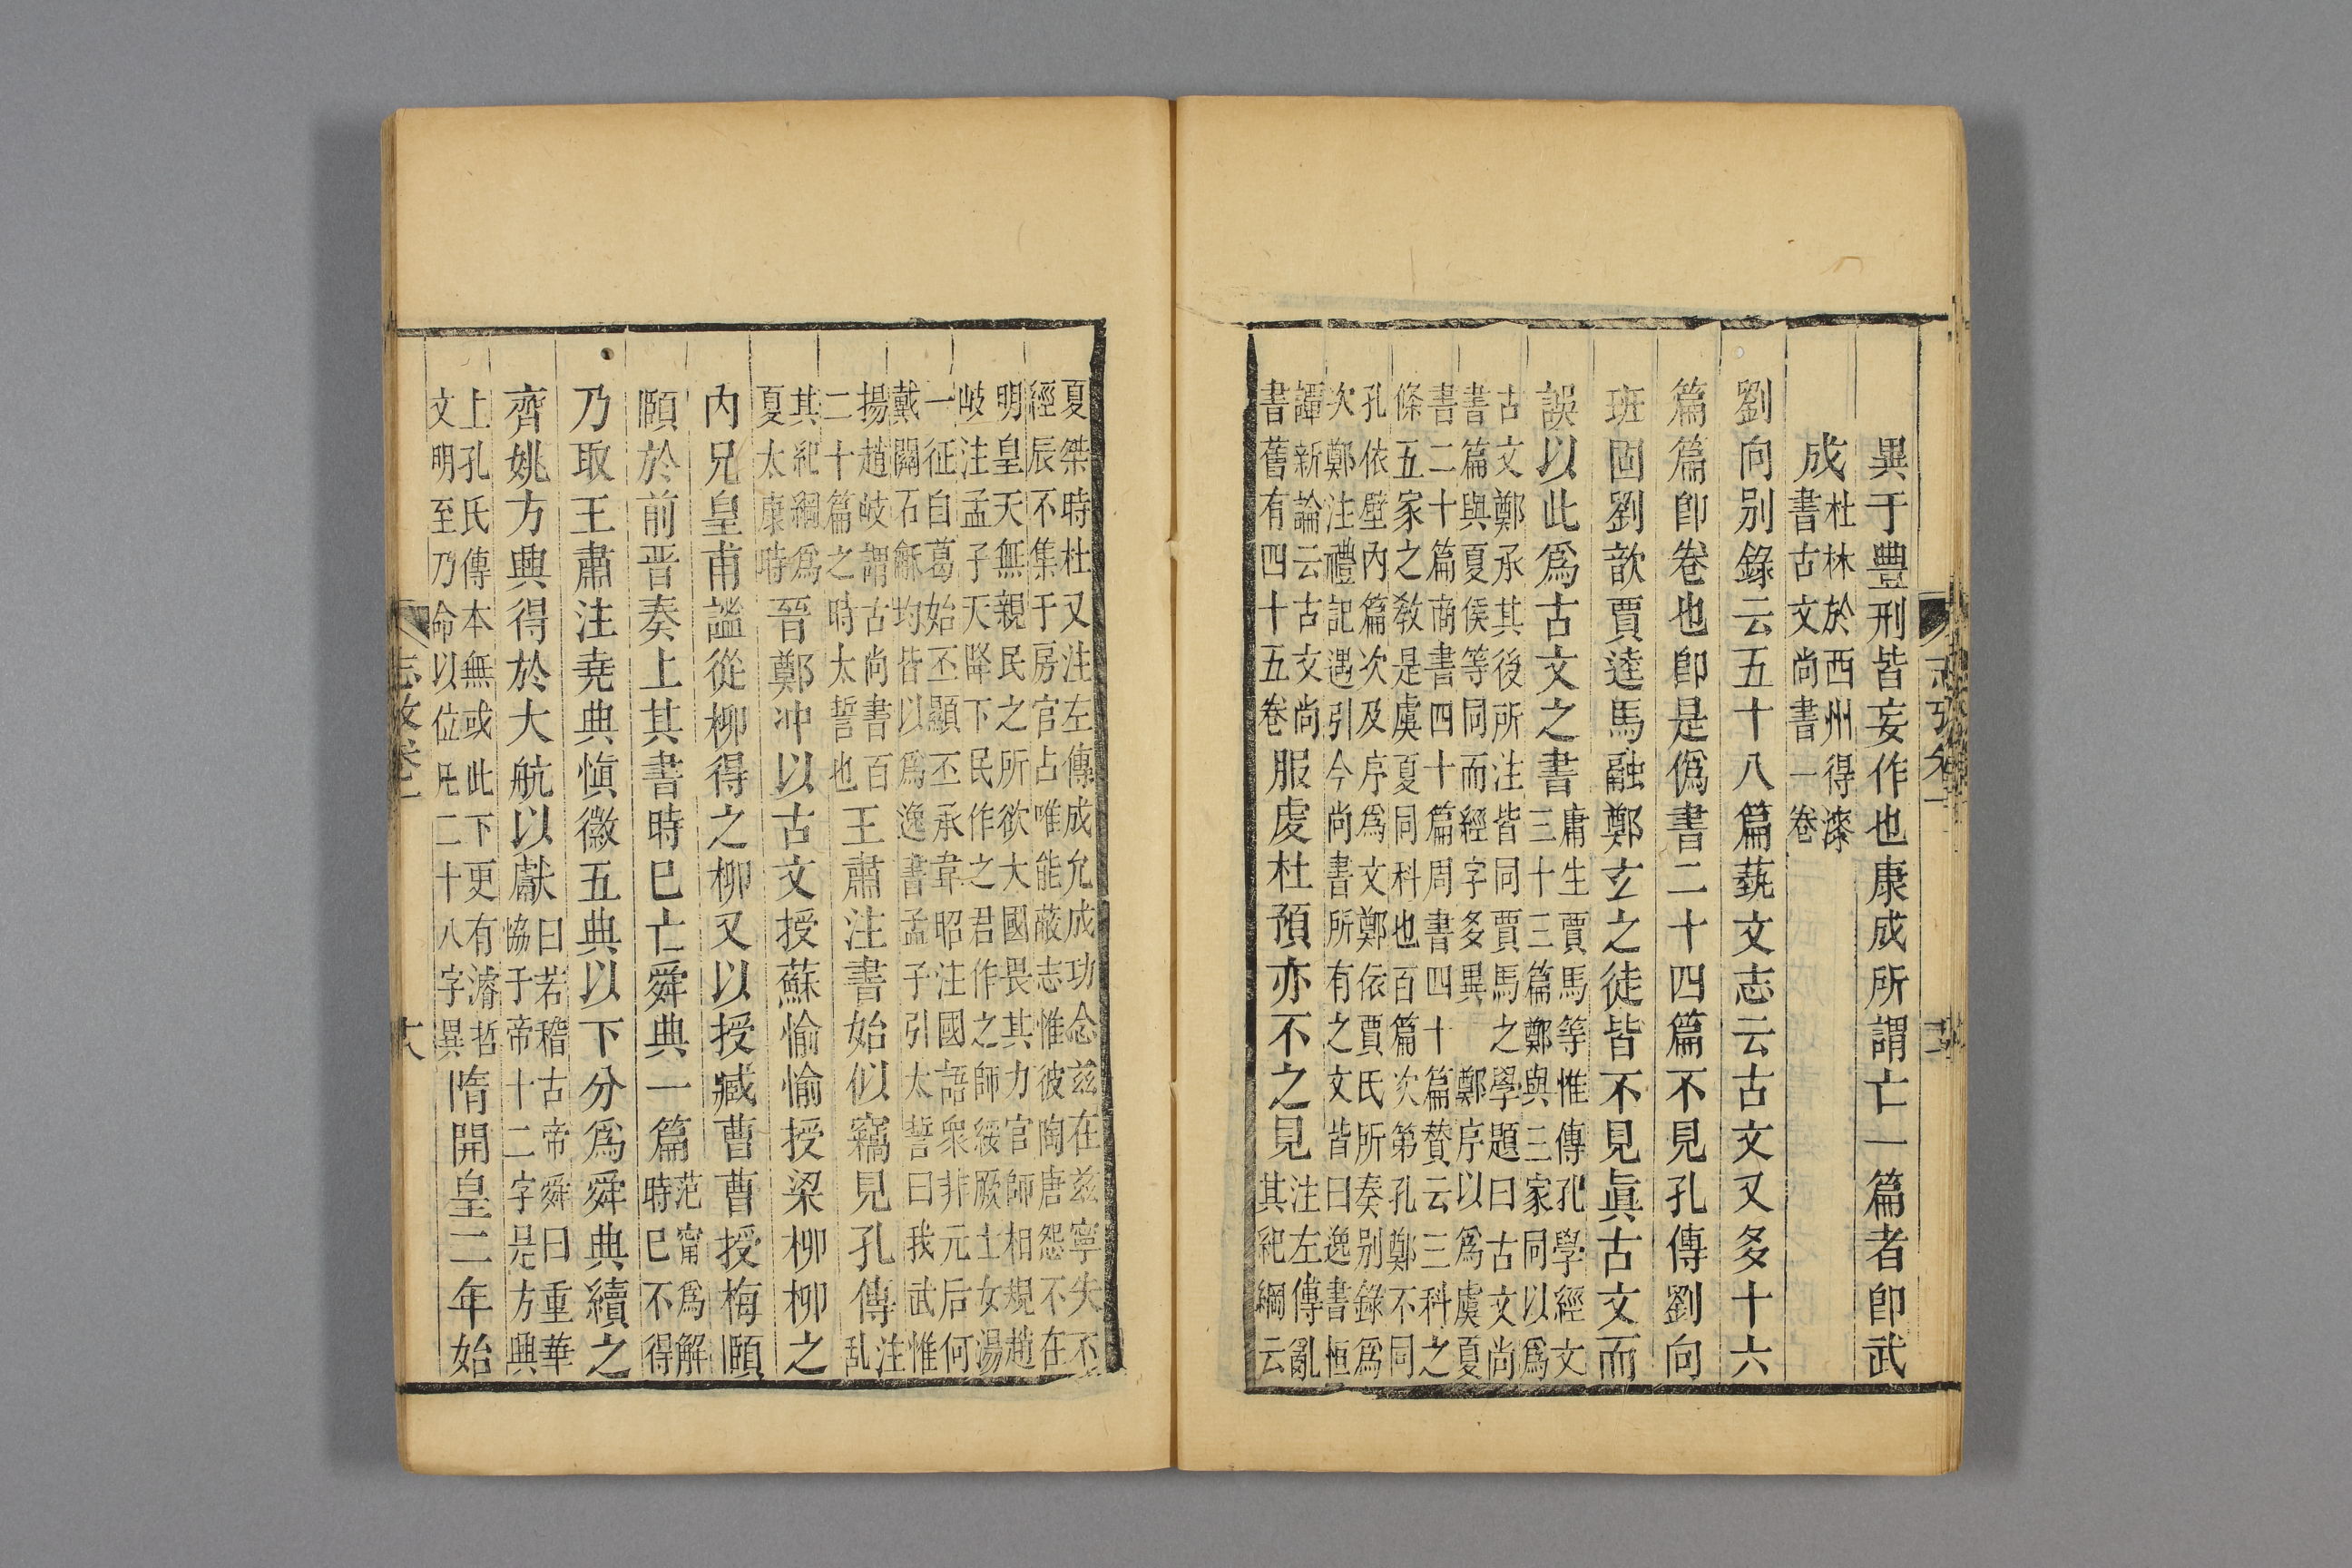 異于豐刑皆妄作也康成所謂亡一篇者卽武
成杜林於西州得漆
書古文尚書一卷
劉向别錄云五十八篇蓺文志云古文又多十六
篇篇卽卷也卽是僞書二十四篇不見孔傳劉向
班固劉歆賈逵馬融鄭玄之徒皆不見眞古文而
誤以此爲古文之書庸生賈馬等惟傳孔學經文
三十三篇鄭與三家同以爲
古文鄭承其後所注皆同賈馬之學題曰古文尚
書篇與夏侯等同而經字多異 鄭序以爲虞夏
書二十篇商書四十篇周書四十篇贊云三科之
條五家之教是虞夏同科也百篇次第孔鄭不同
孔依壁內篇次及序爲文鄭依賈氏所奏别錄爲
次鄭注禮記遇引今尚書所有之文皆曰逸書恒
譚新論云古文尚
書舊有四十五卷服虔杜預亦不之見注左傳亂
其紀綱云
夏桀時杜又注左傳成允成功念兹在兹寧失不
經辰不集于房官占唯能蔽志惟彼陶唐怨不在
明皇天無親民之所欲大國畏其力官師相規趙
岐注孟子天降下民作之君作之師綏厥士女湯
一征自葛始丕顯丕承韋昭注國語衆非元后何
戴關石龢均皆以爲逸書孟子引太誓曰我武惟
揚趙岐謂古尚書百
二十篇之時太誓也王肅注書始似竊見孔傳注
乱
其紀綱爲
夏太康時晉鄭冲以古文授蘇愉愉授梁柳柳之
內兄皇甫謐從柳得之柳又以授臧曹曹授梅頤
頤於前晋奏上其書時巳亡舜典一篇范甯爲解
時巳不得
乃取王肅注堯典愼徽五典以下分爲舜典續之
齊姚方興得於大航以獻曰若稽古帝舜曰重華
協于帝十二字是方興
上孔氏傳本無或此下更有濬哲
文明至乃命以位凡二十八字異隋開皇二年始
志攷卷一